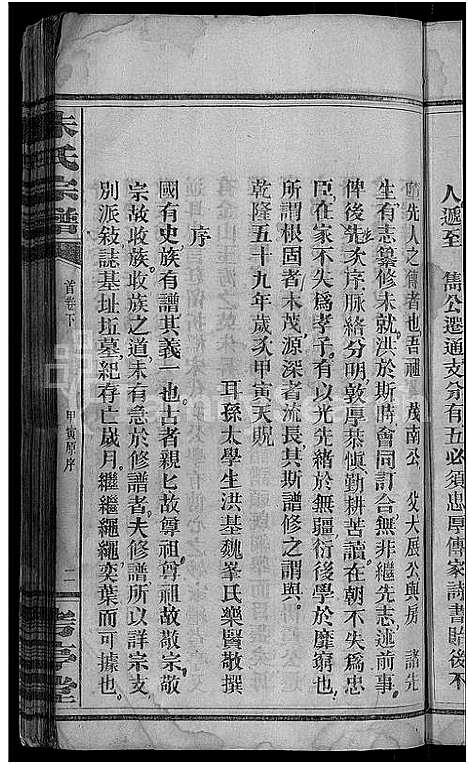 人遞至　雋公遷通支分有五必須忠厚傳家詩書貽後不
先人之傳者也吾祖　茂南公　父大展公與房　諸先
生有志纂修未就洪於斯時會同訂合無非繼先志述前事
俾後先次序脉絡分明敦厚恭愼勤耕苦讀在朝不失為忠
臣在家不失爲孝子有以光先緒於無疆衍後學於靡窮也
所謂根固者木茂源深者流長其斯譜修之謂與
乾隆五十九年歲次甲寅天貺
耳孫太學生洪基魏峯氏樂醫敬撰
序
國有史族有譜其義一也古者親匕故尊祖尊祖故敬宗敬
宗故收族收族之道未有急於修譜者夫修譜所以詳宗支
別派敘誌基址坵墓紀存亡歲月繼繼繩繩奕葉而可據也
朱氏宗譜
首卷下
甲寅原序
二
考亭堂